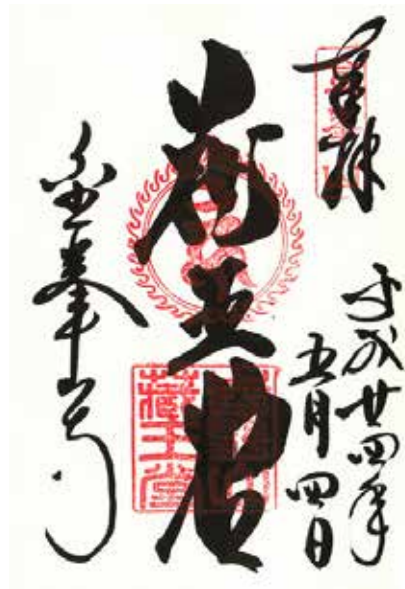 奉拝
平成廿四年
五月四日
蔵王堂
藏王堂
金峯山寺